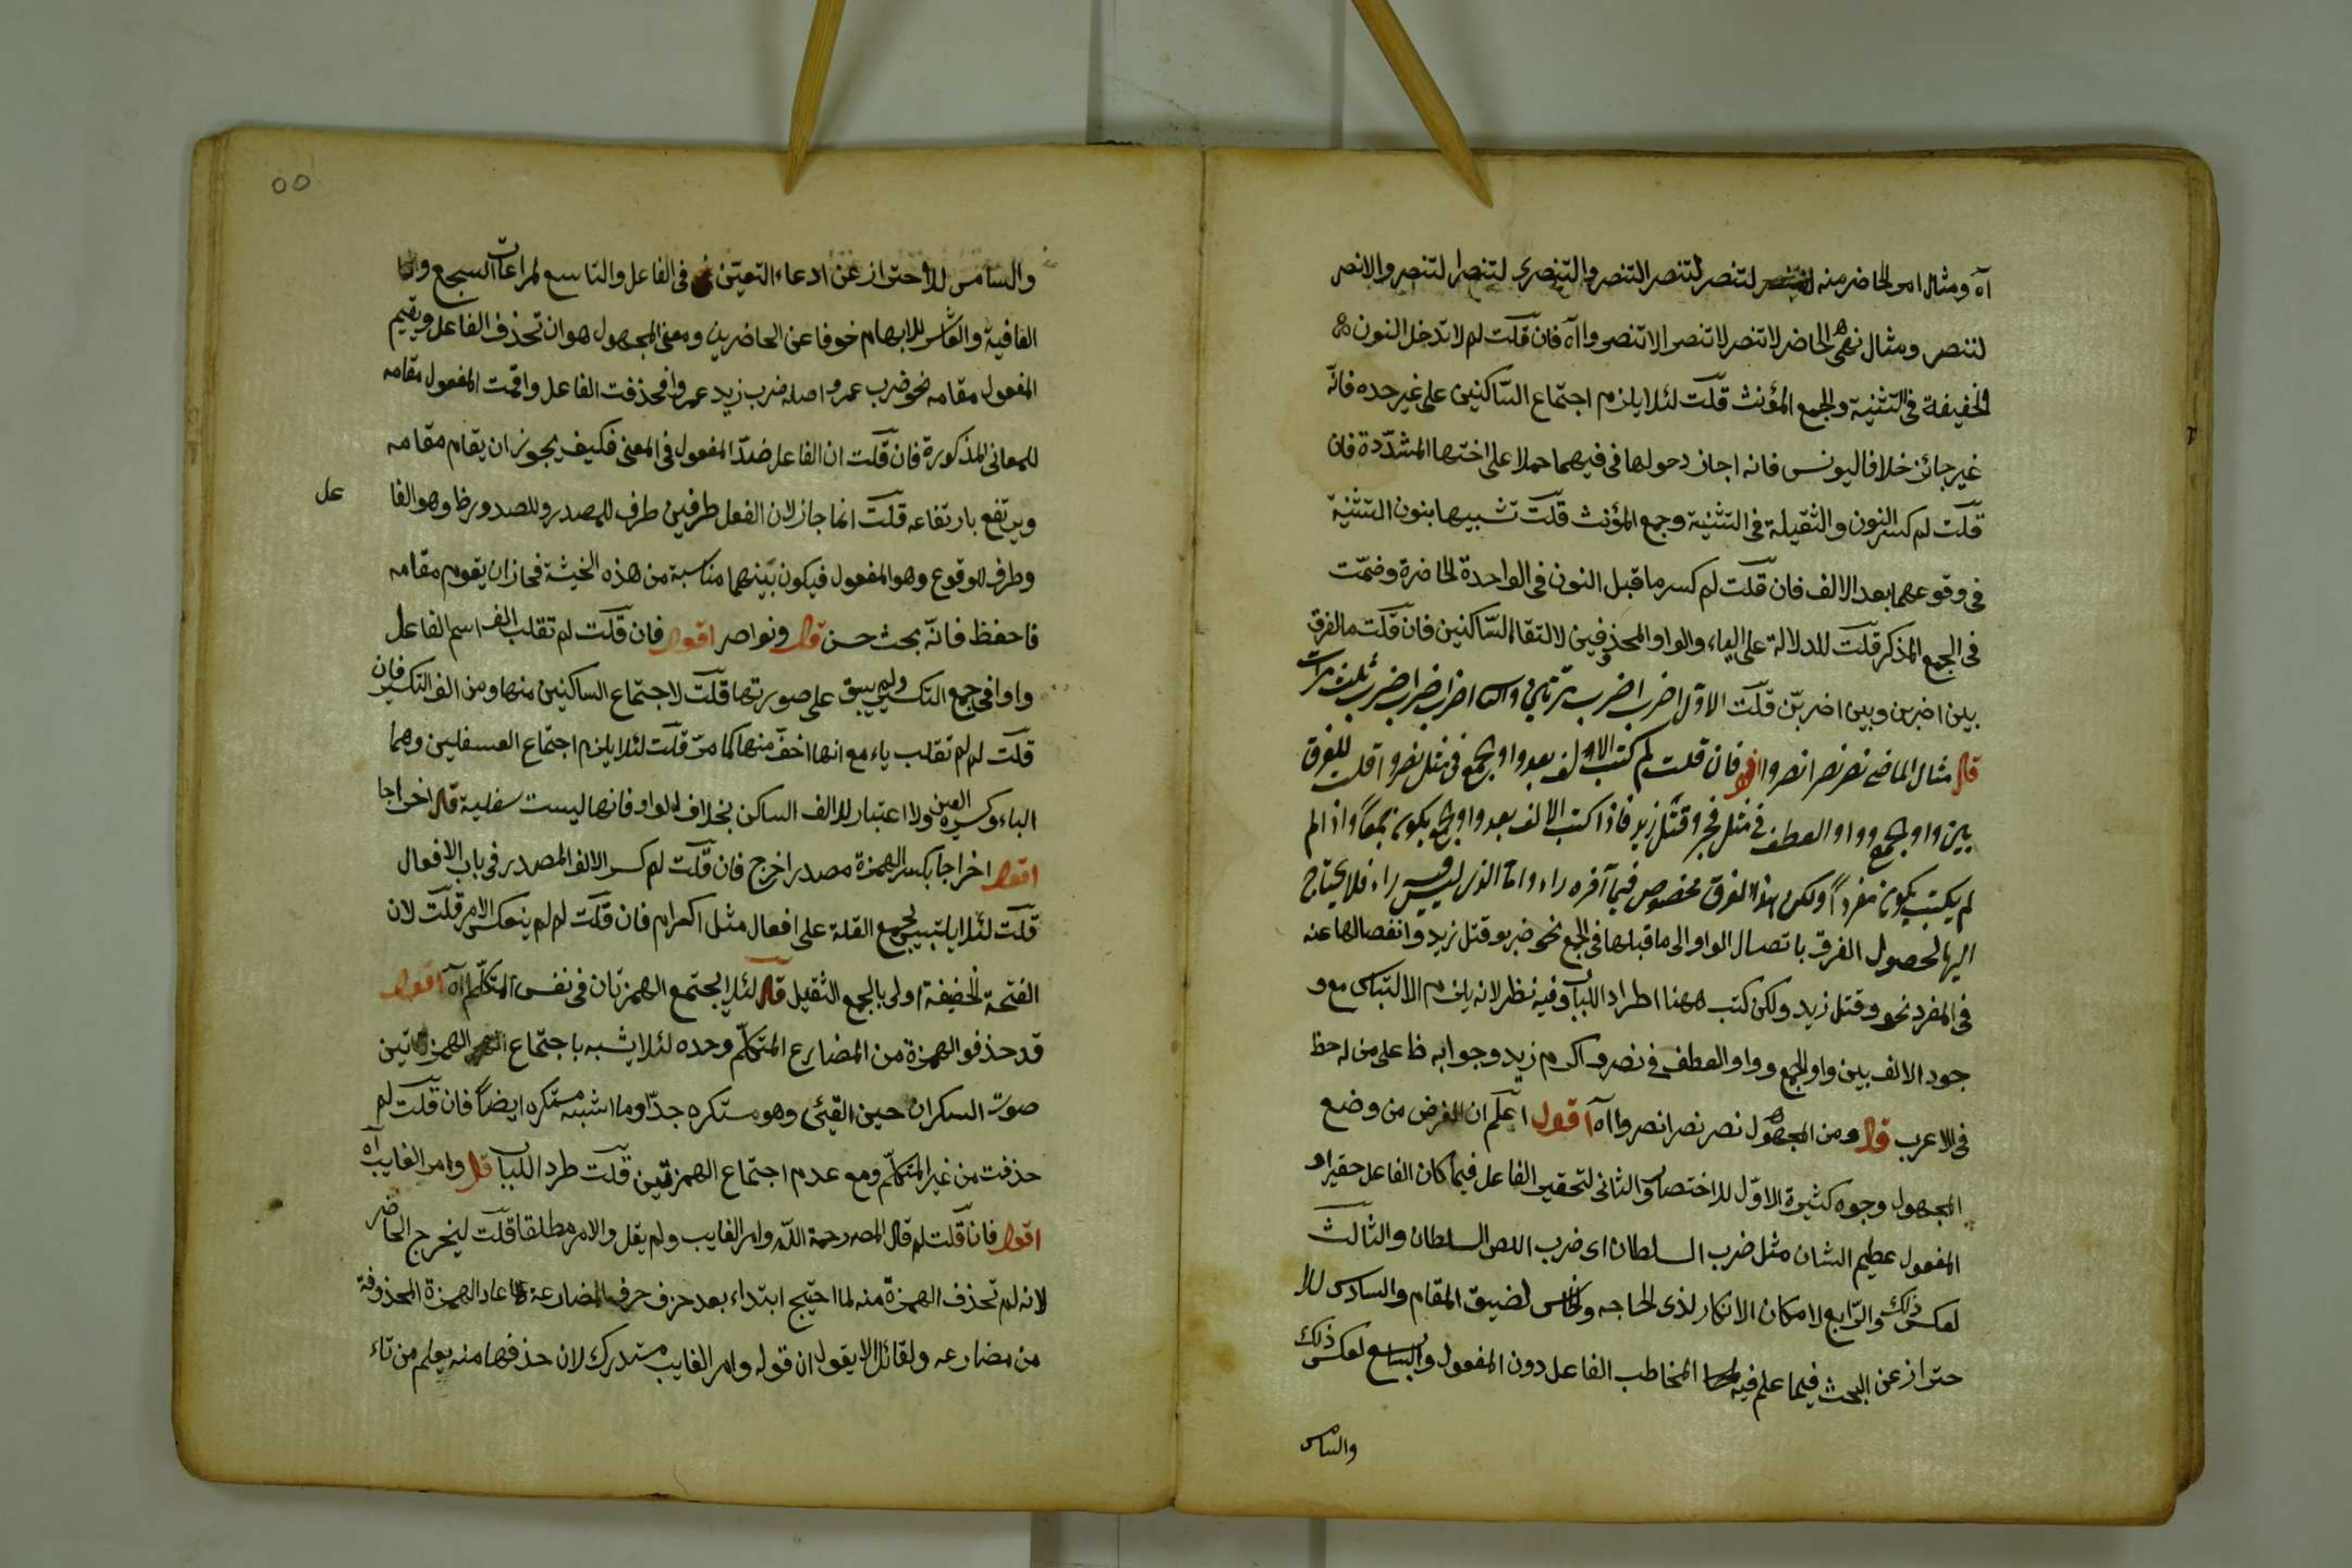 آه ومثال امر الحاضر منه لتنصر لتنصر التنصر والتنصرى لتنصرا لتنصر والانصر
لننصر ومثال نهى الحاضر لاتنصر لاتنصر الاتنصر واآه فان قلت لم لاتدخل النون
الخفيفة فى التثنية والجمع المؤنث قلت لئلا يلزم اجتماع الساكنين على غير حده فانه
غير جائز خلافا ليونس فانه اجاز دحولها فى فيهما حملا على اختها المشددة فان
قلت لم كسر النون والثقيلة فى التثنية وجمع المؤنث قلت تشبيها بنون التثنية
فى وقوعهما بعد الالف فان قلت لم كسر ما قبل النون فى الواحدة الحاضرة وضمت
فى الجمع المذكر قلت للدلالة على الياء والواو المحذوفين لالتقاء الساكنين فان قلت ما الفرق
بين اضربن وبين اضربن قلت الاول اضرب اضرب مرتين اضرب اضرب اضرب ثلث مرات
قال مثال الماضى نصر نصرا نصروا اقول فان قلت لم كتب الالف بعد واو الجمع فى مثل نصروا قلت للفرق
بين واو الجمع وواو العطف فى مثل وقتل زيد فاذا كتب الالف بعد واو الجمع يكون جمعا واذا لم
لم يكتب يكون مفردا ولكن هذا الفرق مخصوص فيما آخره راء واما الذى ليس فيه راء فلا يحتاج
اليها لحصول الفرق باتصال الواو الى ما قبلها فى الجمع نحو ضربو قتل زيد وانفصالها عنه
فى المفرد نحو وقتل زيد ولكن كتب ههنا اطرادا للباب وفيه نظر لانه يلزم الالتباس مع و
جود الالف بين واو الجمع وواو العطف فى نصر واكرم زيد وجوابه ظ على من له حظ
فى الاعرب قال ومن المجهول نصر نصرا نصروا اآه اقول اعلم ان الغرض من وضع
المجهول وجوه كثيرة الاول للاختصار والثانى لتحقير الفاعل فيما كان الفاعل حقيرا و
المفعول عظيم الشان مثل ضرب السلطان اى ضرب اللص السلطان والثالث
لعكس ذلك والرابع لامكان الانكار لذى الحاجه والخامس لضيق المقام والسادس للا
حتراز عن البحث فيما علم فيه المخاطب الفاعل دون المفعول والسابع لعكس ذلك
والثامن
٥٥
والثامن للاحتراز عن ادعاء التعين فى الفاعل والتاسع لمراعات السجع وا
القافية والعاشر للابهام خوفا عن الحاضرين ومعنى المجهول هو ان تحذف الفاعل ويقيم
المفعول مقامه نحو ضرب عمرو اصله ضرب زيد عمروا فحذفت الفاعل واقمت المفعول مقامه
للمعانى المذكورة فان قلت ان الفاعل ضد المفعول فى المعنى فكيف يجوز ان يقام مقامه
ويرتفع بارتفاعه قلت انما جاز لان الفعل طرفين طرف للمصدر وللصدور ظ وهو الفا
عل
وطرف للوقوع وهو المفعول فيكون بينهما مناسبة من هذه الحيثة فجاز ان يقوم مقامه
فاحفظ فانه بحث حسن قال ونواصر اقول فان قلت لم تقلب الف اسم الفاعل
واوا فى جمع التكسير ولم يبق على صورتها قلت لاجتماع الساكنين منها ومن الف التكسير فان
قلت لم لم تقلب ياء مع انها اخف منها كما مر قلت لئلا يلزم اجتماع السفليين وهما
الياء وكسرة العين ولا اعتبار للالف الساكن بخلاف الواو فانها ليست سفلية قال اخراجا
اقول اخراجا بكسر الهمزة مصدر اخرج فان قلت لم كسر الالف المصدر فى باب الافعال
قلت لئلا يلتبس بجمع القلة على افعال مثل اكرام فان قلت لم لم ينعكس الامر قلت لان
الفتحة الخفيفة اولى بالجمع الثقيل قال لئلا يجتمع الهمزتان فى نفس المتكلم اآه اقول
قد حذفوا الهمزة من المضارع المتكلم وحده لئلا يشبه باجتماع الهمزتين
صوت السكران حين القيئى وهو مستكره جدا وما اشبه مستكره ايضا فان قلت لم
حذفت من غير المتكلم ومع عدم اجتماع الهمزتين قلت طردا للباب قال وامر الغايب آه
اقول فان قلت لم قال المص رحمة الله وامر الغايب ولم يقل والامر مطلقا قلت ليخرج الحاضر
لانه لم تحذف الهمزة منه لما احتيج ابتداء بعد حزف حرف المضارعة اعاد الهمزة المحذوفة
من مضارعه ولقائل الا يقول ان قوله وامر الغايب مستدرك لان حذفها منه يعلم من تاء